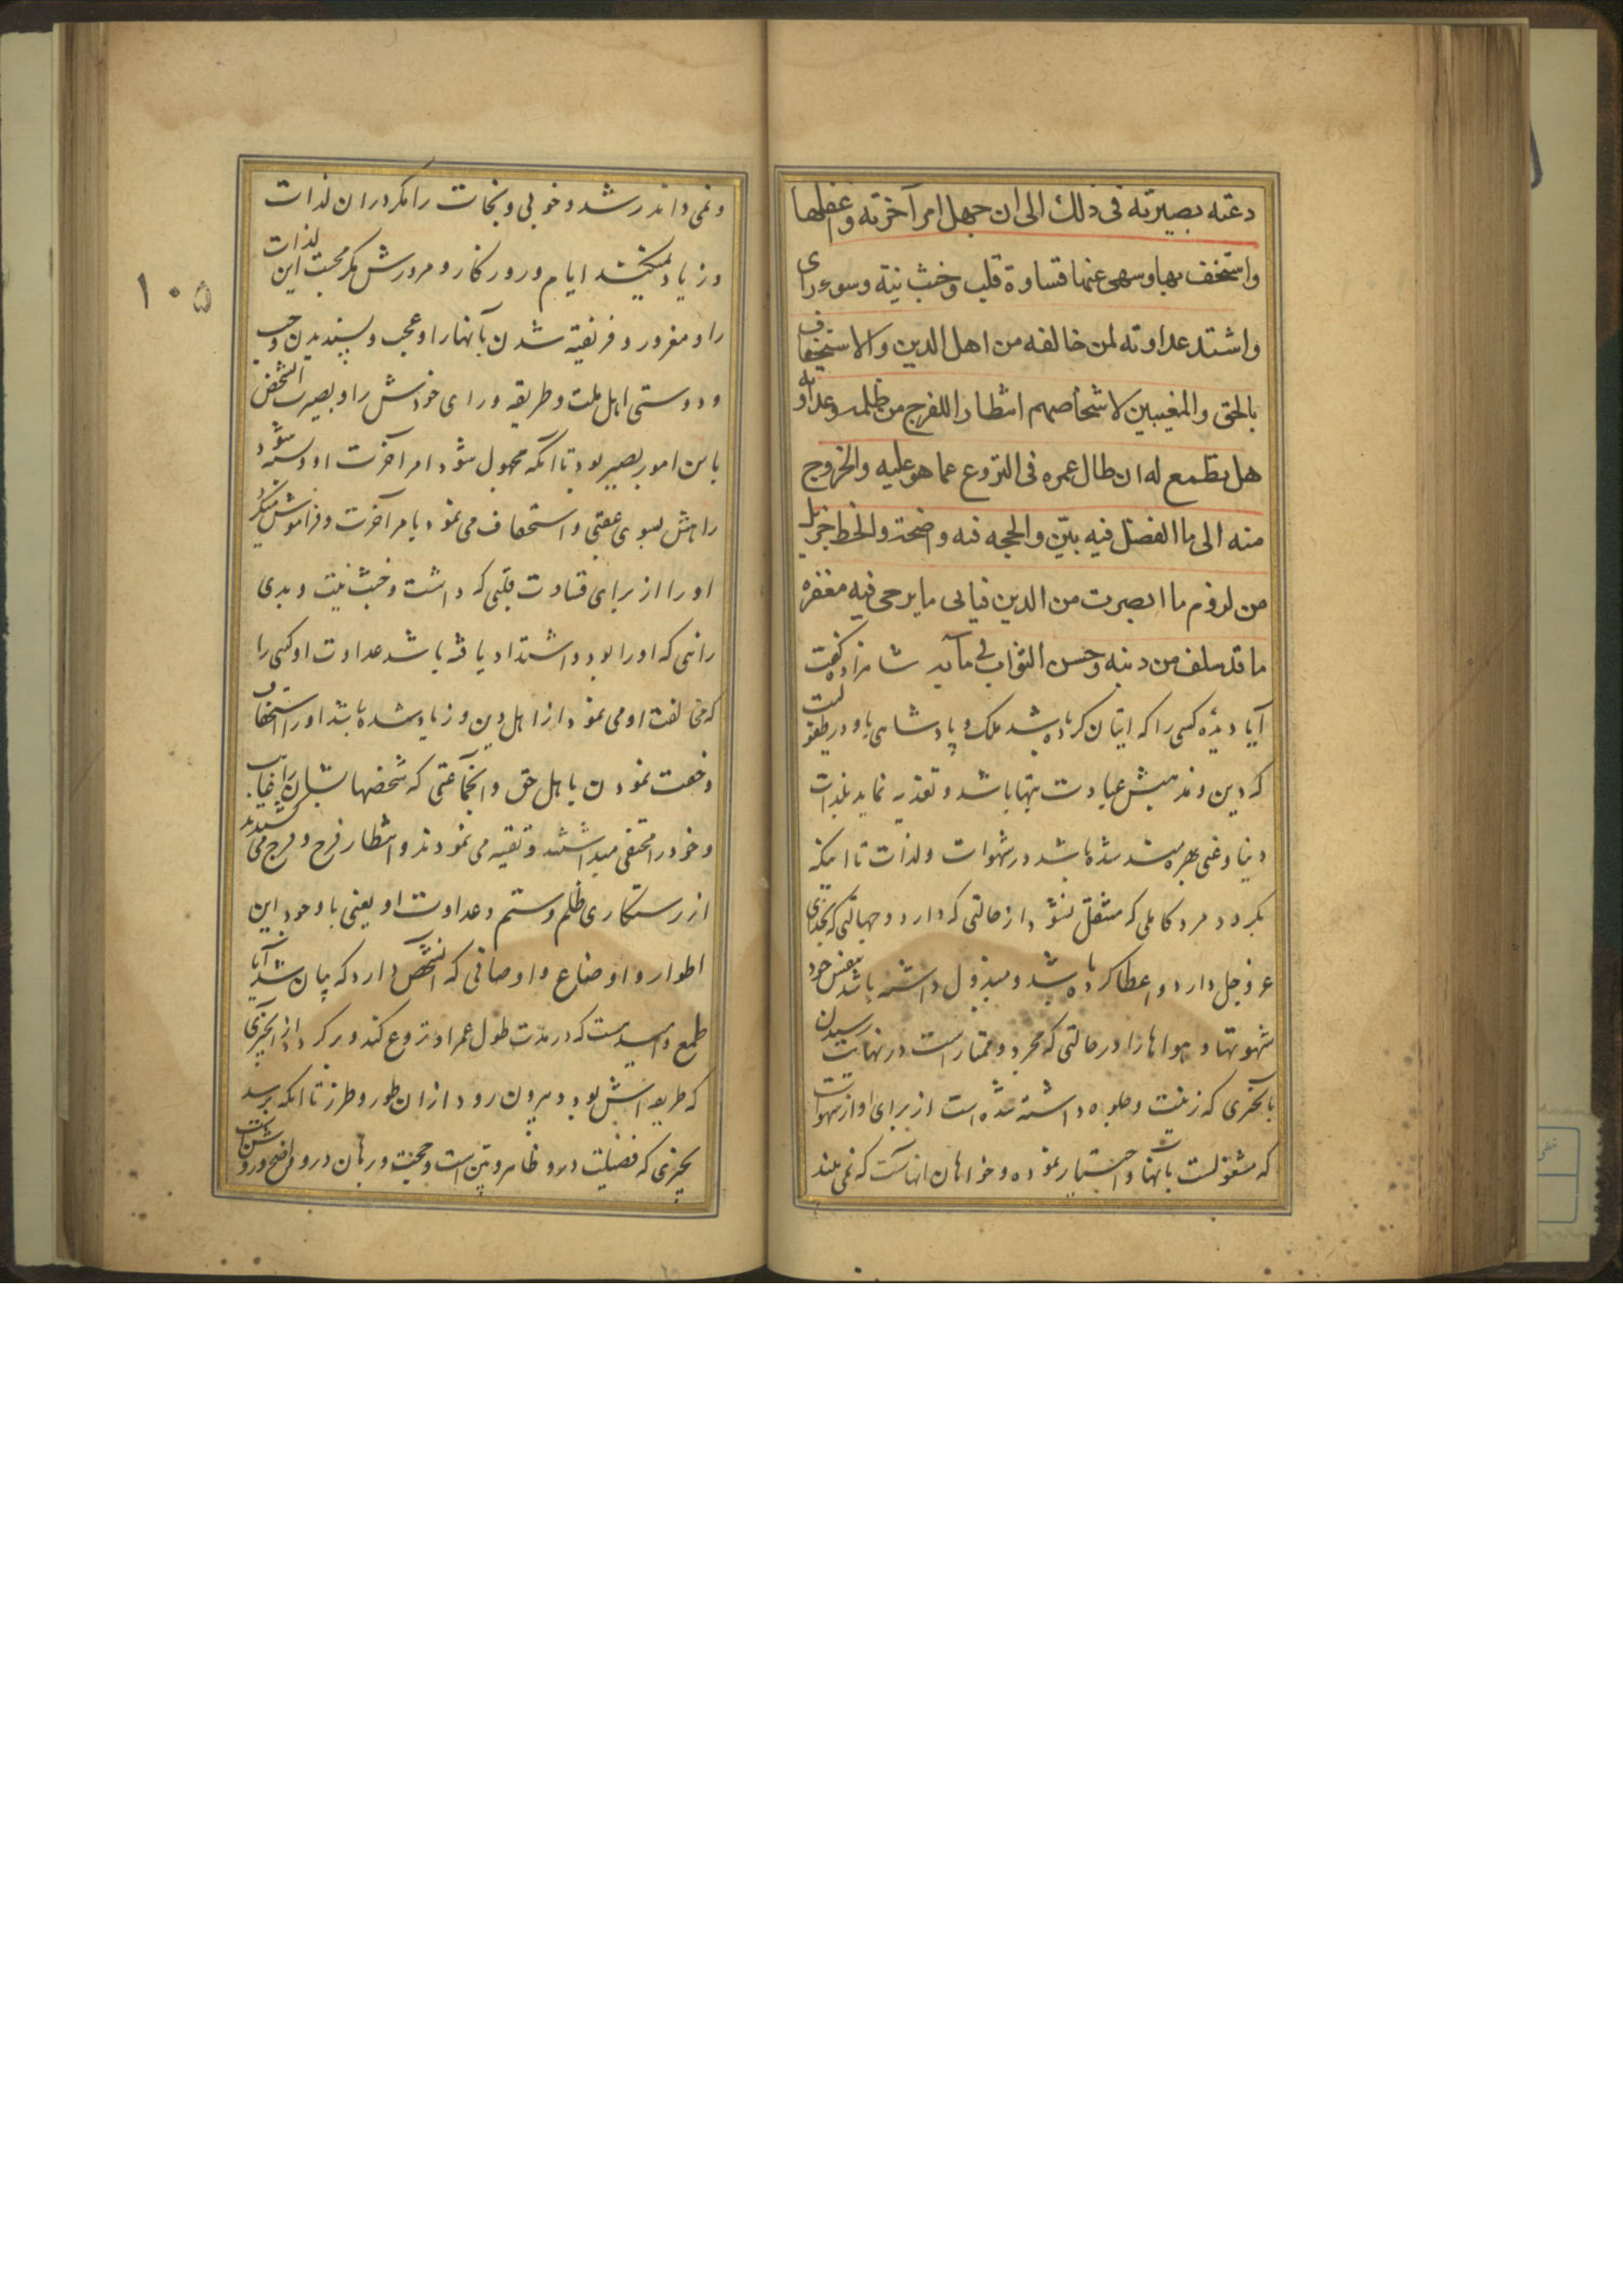 دعته بصیرته فی ذلك الی ان جهل امر آخرته و اغفلها
واستخف بها وسهی عنها قساوة قلب وخبث نیته وسوء رای
واشتد عداوته لمن خالفه من اهل الدین والاستخفاف
بالحق والمغیبین لاشخاصهم انتظارا للفرج من ظلمه وعداوته
هل یطمع له ان طال عمره فی النزوع عما هو علیه والخروج
منه الی ما الفضل فیه بیّن والحجه فیه واضحة والحظ جزیل
من لزوم ما ابصرت من الدین فیاتی ما یرجی فیه مغفره
ما قد سلف من ذنبه وحسن الثواب فی مآبه شاهزاده گفت
آیا دیده کسی را که اتیان کرده باشد ملک و پادشاهی باو در طفولیت
که دین و مذهبش عبادت بتها باشد و تغذیه نماید بلذات
دنیا و غنی بهره‌مند شده باشد در شهوات و لذات تا اینکه
بگردد مرد کاملی که منتقل نشود از حالتی که دارد و جهالتی که بخدای
عز و جل دارد و اعطا کرده باشد و مبذول داشته باشد بنفس خود
شهوتها و هواها را در حالتی که مجرد و ممتاز است در نهایت رسیدن
بآنچیزی که زینت و جلوه داشته شده است از برای او از شهوات
که مشغولست بآنها و اختیار نموده و خواهان انهاست که نمی‌بیند
ونمی داند رشد و خوبی و نجات را مگر در ان لذات
و زیاد نمیکند ایام و روزگار و مرورش مگر محبت این لذات
را و مغرور و فریفته شدن بآنها را و عجب و پسندیدن و حب
و دوستی اهل ملت و طریقه و رای خودش را و بصیرت آنشخص
باین امور بصیر بود تا آنکه مجهول شود امر آخرت او و بسته شود
راهش بسوی عقبی و استخفاف می نمود بامر آخرت و فراموش میکرد
او را از برای قساوت قلبی که داشت و خبث نیت و بدی
رائی که او را بود و اشتداد یافته باشد عداوت او کسی را
که مخالفت او می نمود از اهل دین و زیاد شده باشد او را استخفاف
و خفت نمودن باهل حق و آنجماعتی که شخصهایشان را غیاب
و خود را مختفی میداشتند و تقیه می نمودند و انتظار فرح و فرج می کشیدند
از رستکاری ظلم و ستم و عداوت او یعنی با وجود این
اطوار و اوضاع و اوصافی که آنشخص دارد که بیان شد آیا
طمع و امید هست که در مدت طول عمر او نزوع کند و برگردد از آنچیزی
که طریقه‌اش بود و بیرون رود از ان طور و طرز تا آنکه برسد
بچیزی که فضیلت درو ظاهر و بیّن است و حجت و برهان درو واضح و روشن است
۱۰۵